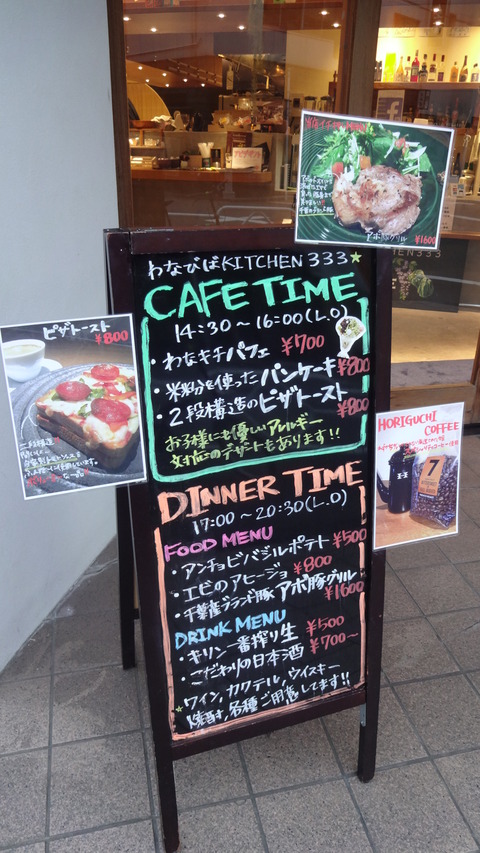 わなびばKITCHEN 333
CAFE TIME
14:30~16:00(L.O)
・わなキチパフェ ¥700
・米粉を使ったパンケーキ ¥800
・2段構造のピザトースト ¥800
お子様にも優しいアレルギー
対応のデザートもあります!!
DINNER TIME
17:00~20:30(L.O)
FOOD MENU
・アンチョビバジルポテト ¥500
・エビのアヒージョ ¥800
・千葉産ブランド豚 アボ豚グリル ¥1600
DRINK MENU
・キリン一番搾り生 ¥500
・こだわりの日本酒 ¥700~
ワイン、カクテル、ウイスキー
焼酎、各種ご用意してます!!
ピザトースト
¥800
アボ豚グリル
¥1600
HORIGUCHI
COFFEE
7